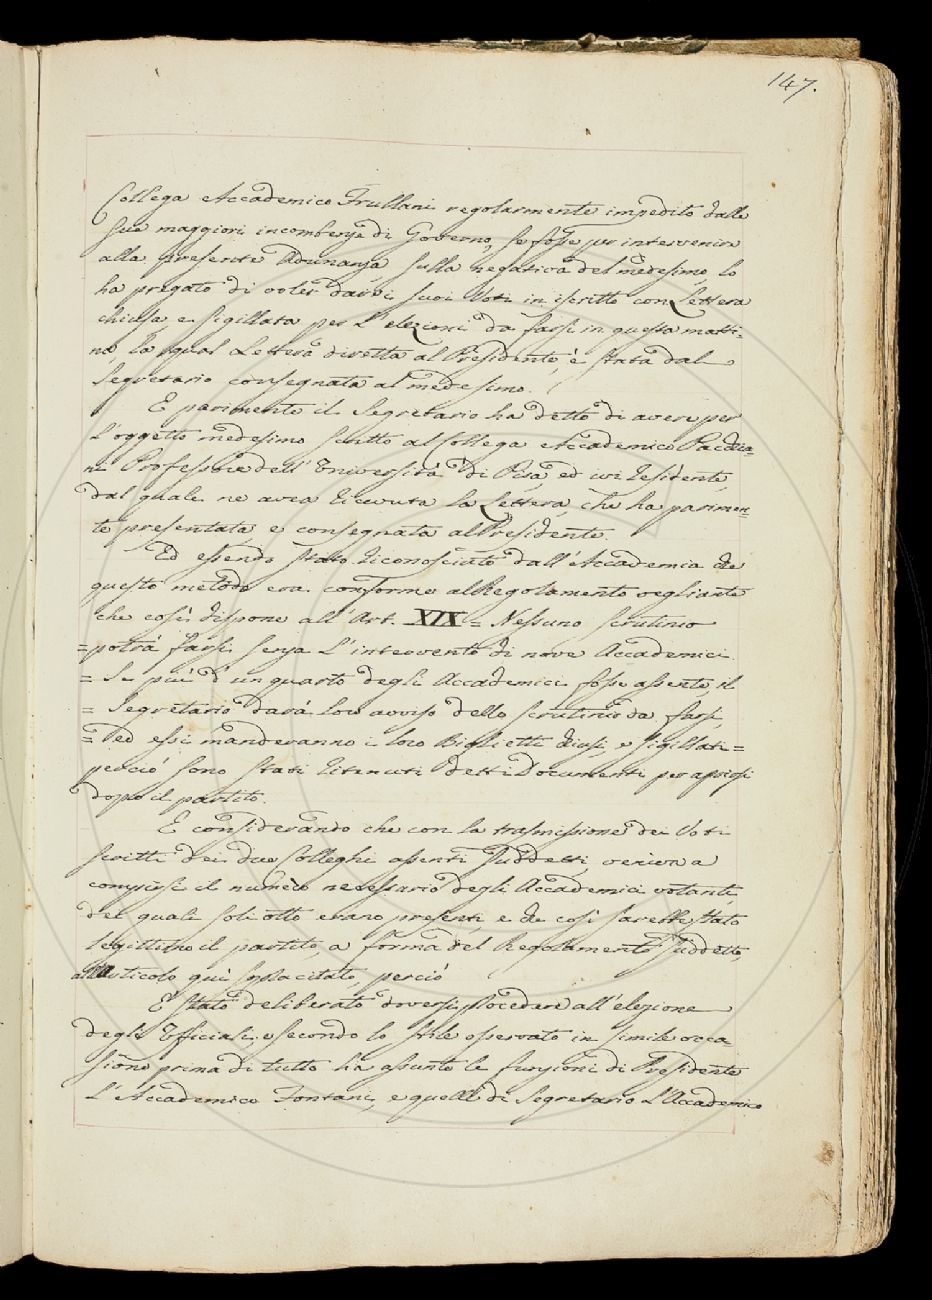 147.
Collega Accademico Frullani regolarmente impedito dalle
sue maggiori incombenze di Governo, se fosse per intervenire
alla presente Adunanza sulla negativa del medesimo, lo
ha pregato di voler dare i suoi Voti in iscritto con Lettera
chiusa, e sigillata per l'elezioni da farsi in questa matti=
na, la qual Lettera diretta al Presidente, è stata dal
Segretario consegnata al medesimo.
E parimente il Segretario ha detto di avere per
l'oggetto medesimo scritto al Collega Accademico Pacchia=
ni Professore dell'Università di Pisa, ed ivi residente,
dal quale ne avea ricevuta la Lettera che ha parimen=
te presentata, e consegnata al Presidente.
Ed essendo stato riconosciuto dall'Accademia che
questo metodo era conforme al Regolamento vegliante
che così dispone all'Art. XIX = Nessuno scrutinio
= potrà farsi senza l'intervento di nove Accademici
= Se più d'un quarto degli Accademici fosse assente, il
= Segretario darà loro avviso dello scrutinio da farsi,
= ed essi manderanno i loro Biglietti chiusi, e sigillati =
perciò sono stati ritenuti detti Documenti per aprirsi
dopo il partito.
E considerando che con la trasmissione dei Voti
scritti dei due Colleghi assenti suddetti, veniva a
compirsi il numero necessario degli Accademici votanti,
dei quali soli otto erano presenti, e che così sarebbe stato
legittimo il partito, a forma del Regolamento suddetto,
all'articolo qui sopracitato, perciò
È stato deliberato doversi procedere all'elezione
degli Uffiziali, e secondo lo stile osservato in simile occa
sione prima di tutto ha assunto le funzioni di Presidente
l'Accademico Fontani, e quelle di Segretario l'Accademico